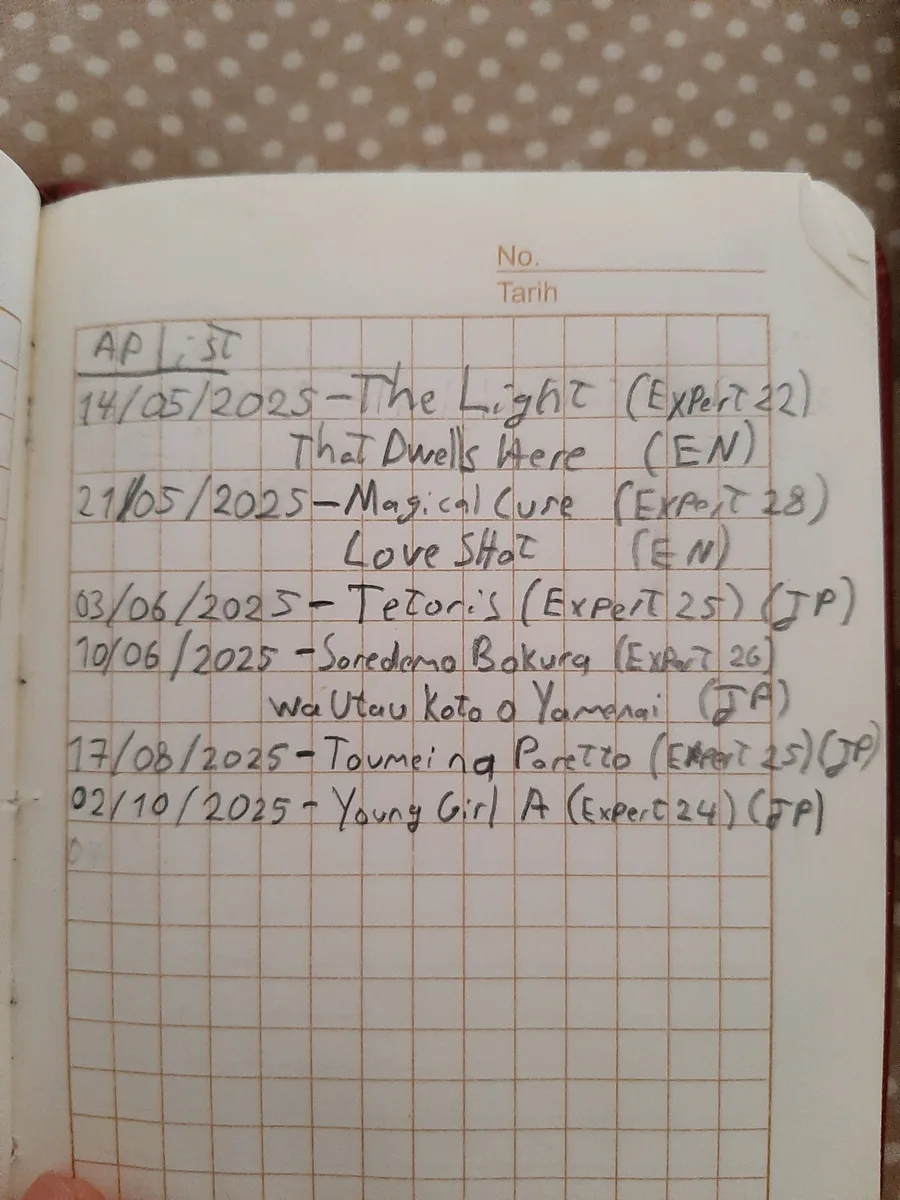 No.
Tarih
AP List
14/05/2025-The Light (Expert 22)
That Dwells Here (EN)
21/05/2025-Magical Cure (Expert 28)
Love SHot (EN)
03/06/2025- Tetoris (Expert 25) (JP)
10/06/2025 -Soredemo Bokura (Expert 26)
wa Utau Koto o Yamenai (JP)
17/08/2025- Toumei na Paretto (Expert 25) (JP)
02/10/2025- Young Girl A (Expert 24) (JP)